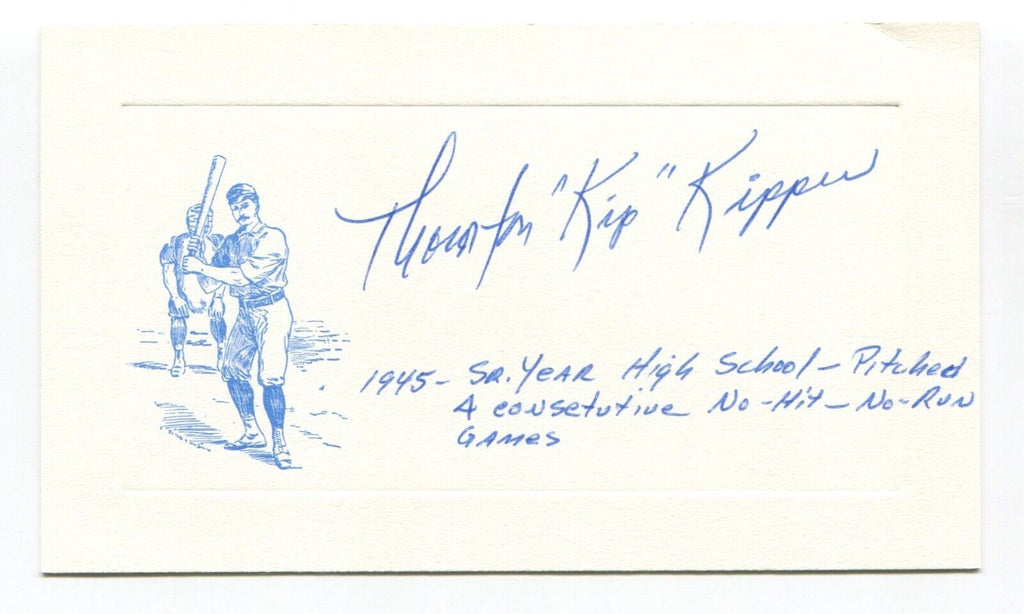 Thornton "Kip" Kipper
1945- SR. YEAR High School - Pitched
4 consetutive No-Hit-No-Run
Games